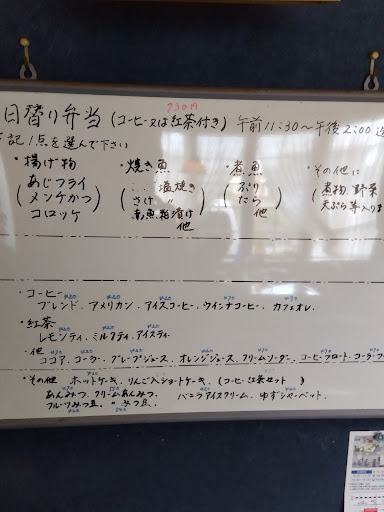 日替り弁当 (コーヒー又は紅茶付き) 午前11:30~午後2:00迄
下記1点を選んで下さい
・揚げ物
(あじフライ
メンチかつ
コロッケ)
・焼き魚
(塩焼き
さけ 〃
赤魚粕漬け
他)
・煮魚
(ぶり
たら
他)
・その他に
(煮物、野菜
天ぷら等入り
・コーヒー
ブレンド、アメリカン、アイスコーヒー、ウインナコーヒー、カフェオレ、
・紅茶
レモンティ、ミルクティ、アイスティ
・他
ココア、コーラ、グレープジュース、オレンジジュース、クリームソーダー、コーヒーフロート、コーラ・フ
・その他 ホットケーキ、りんご入ショートケーキ、(コーヒー紅茶セット )
あんみつ、クリームあんみつ、 バニラアイスクリーム、ゆずシャーベット、
フルーツみつ豆、 〃 みつ豆、